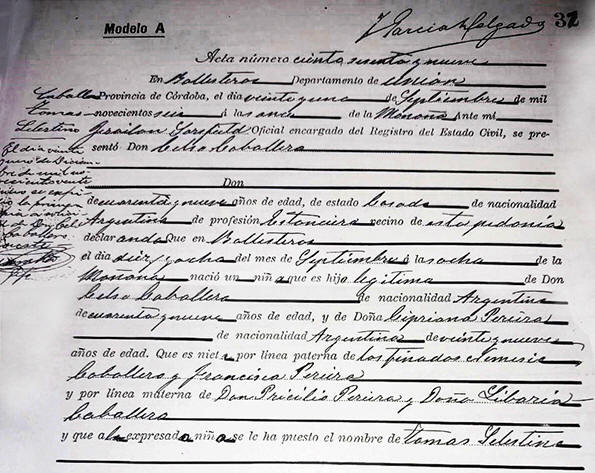 Modelo A
J García Delgado 32
Acta número ciento sesenta y nueve
En Ballesteros Departamento de Unión
Caballero Provincia de Córdoba, el día veinte y uno de Septiembre de mil
Tomas novecientos seis á las once de la Mañana Ante mi
Selestino Oficial encargado del Registro del Estado Civil, se pre-
sentó Don Celso Caballero
Don
de cuarenta y nueve años de edad, de estado Casado de nacionalidad
Argentina de profesión Estanciero vecino de esta pedanía
declarando Que en Ballesteros
el día diez y ocho del mes de Septiembre á las ocho de la
Mañana nació un niño que es hijo legitimo de Don
Celso Caballero de nacionalidad Argentina
de cuarenta y nueve años de edad, y de Doña Cipriana Pereira
de nacionalidad Argentina de veinte y nueve
años de edad. Que es nieto por línea paterna de los finados Nemesio
Caballero y Francisca Pereira
y por línea materna de Don Pricilio Pereira y Doña Libaria
Caballero
y que al expresado niño se le ha puesto el nombre de Tomas Selestino
El día veinte